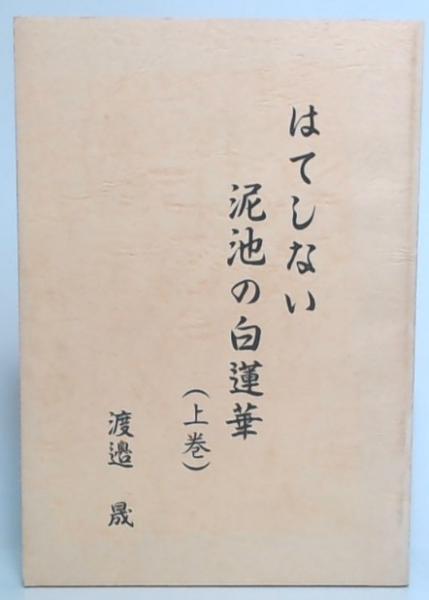 はてしない
泥池の白蓮華
(上巻)
渡邉 晟